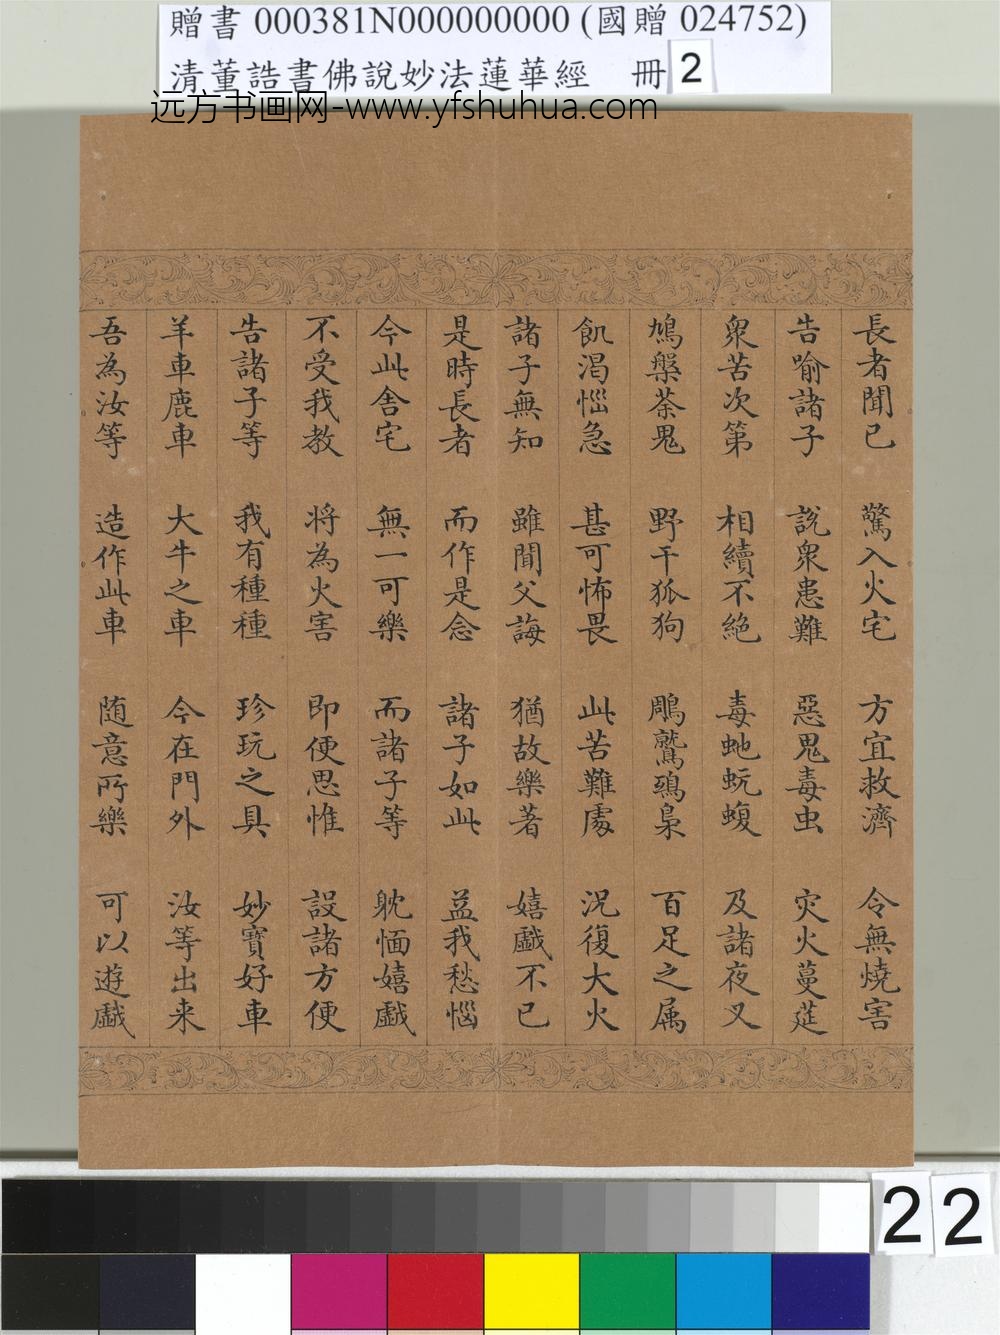 贈書 000381N000000000 (國贈 024752)
清董誥書佛說妙法蓮華經 冊 2
远方书画网-www.yfshuhua.com
長者聞已 驚入火宅 方宜救濟 令無燒害
告喻諸子 說衆患難 惡鬼毒虫 灾火蔓莚
衆苦次第 相續不絕 毒虵蚖蝮 及諸夜叉
鳩槃荼鬼 野干狐狗 鵰鷲鵄梟 百足之属
飢渴惱急 甚可怖畏 此苦難處 况復大火
諸子無知 雖聞父誨 猶故樂著 嬉戲不已
是時長者 而作是念 諸子如此 益我愁惱
今此舍宅 無一可樂 而諸子等 躭愐嬉戲
不受我教 将為火害 即便思惟 設諸方便
告諸子等 我有種種 珍玩之具 妙寶好車
羊車鹿車 大牛之車 今在門外 汝等出来
吾為汝等 造作此車 随意所樂 可以遊戲
22